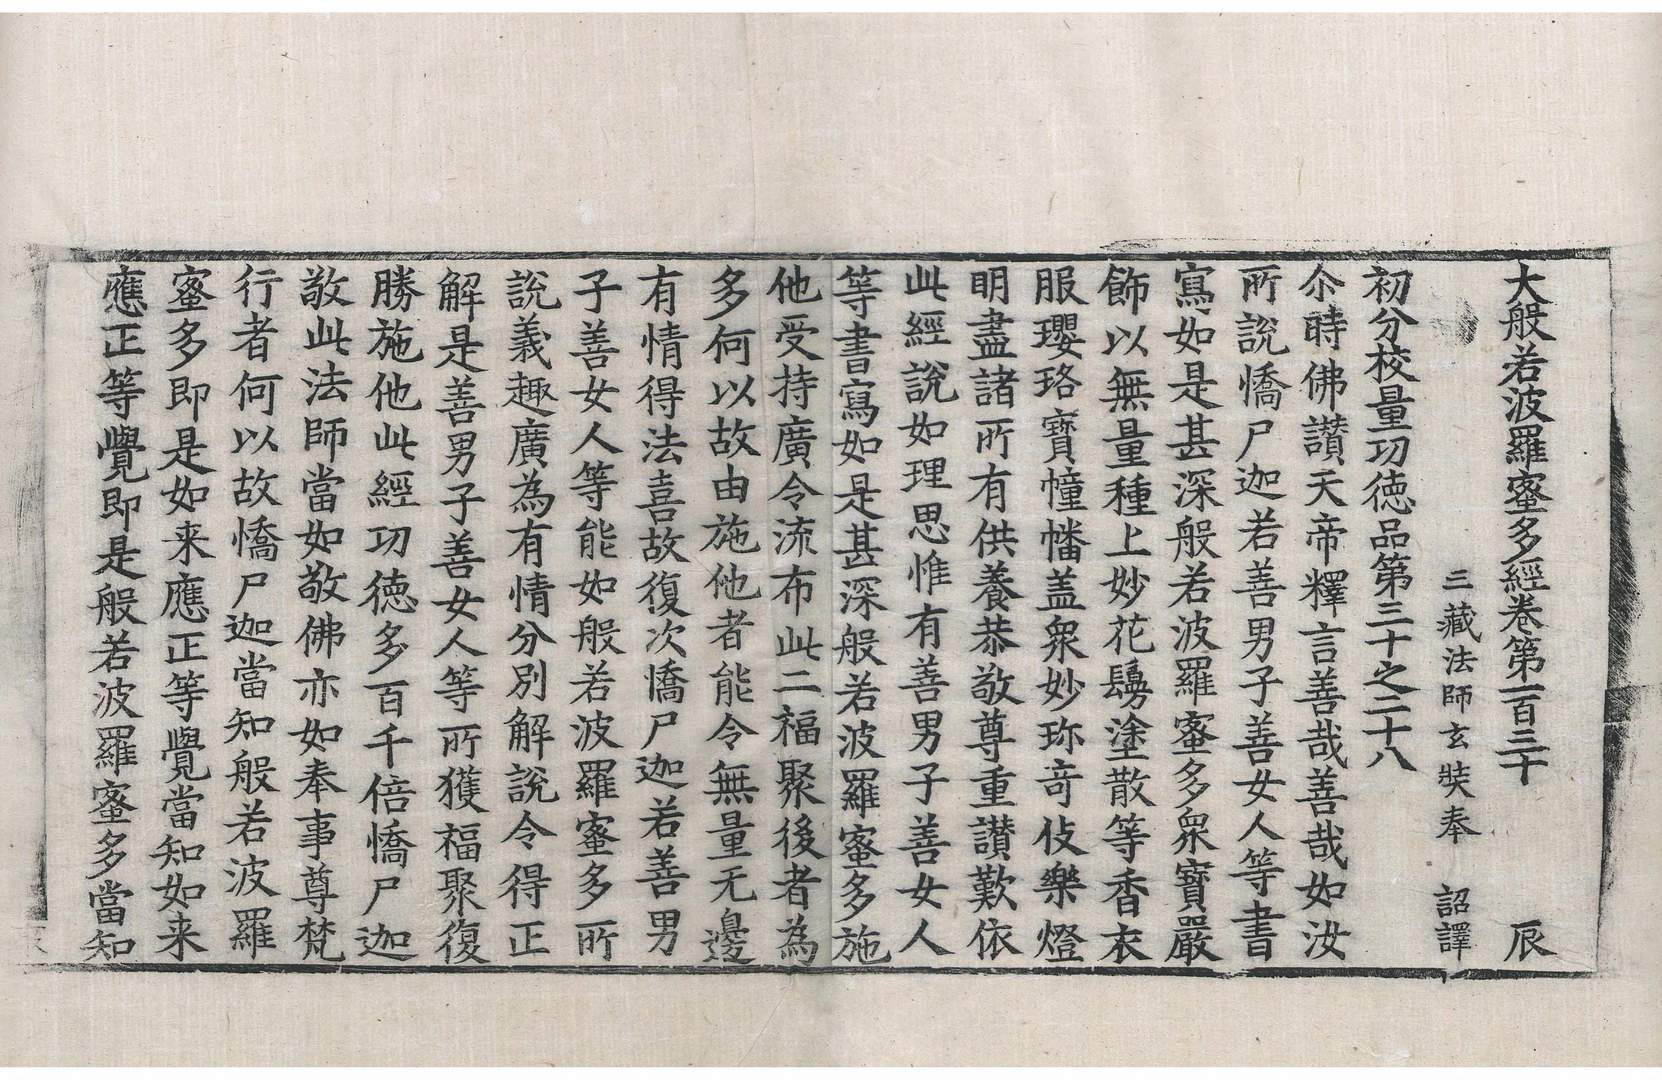 大般若波羅蜜多經卷第一百三十　辰
三藏法師玄奘奉　詔譯
初分校量功德品第三十之二十八
尒時佛讃天帝釋言善哉善哉如汝
所說憍尸迦若善男子善女人等書
寫如是甚深般若波羅蜜多衆寶嚴
飾以無量種上妙花鬘塗散等香衣
服瓔珞寶幢幡盖衆妙珎奇伎樂燈
明盡諸所有供養恭敬尊重讃歎依
此經說如理思惟有善男子善女人
等書寫如是甚深般若波羅蜜多施
他受持廣令流布此二福聚後者為
多何以故由施他者能令無量无邊
有情得法喜故復次憍尸迦若善男
子善女人等能如般若波羅蜜多所
說義趣廣為有情分別解說令得正
解是善男子善女人等所獲福聚復
勝施他此經功德多百千倍憍尸迦
敬此法師當如敬佛亦如奉事尊梵
行者何以故憍尸迦當知般若波羅
蜜多即是如来應正等覺當知如来
應正等覺即是般若波羅蜜多當知